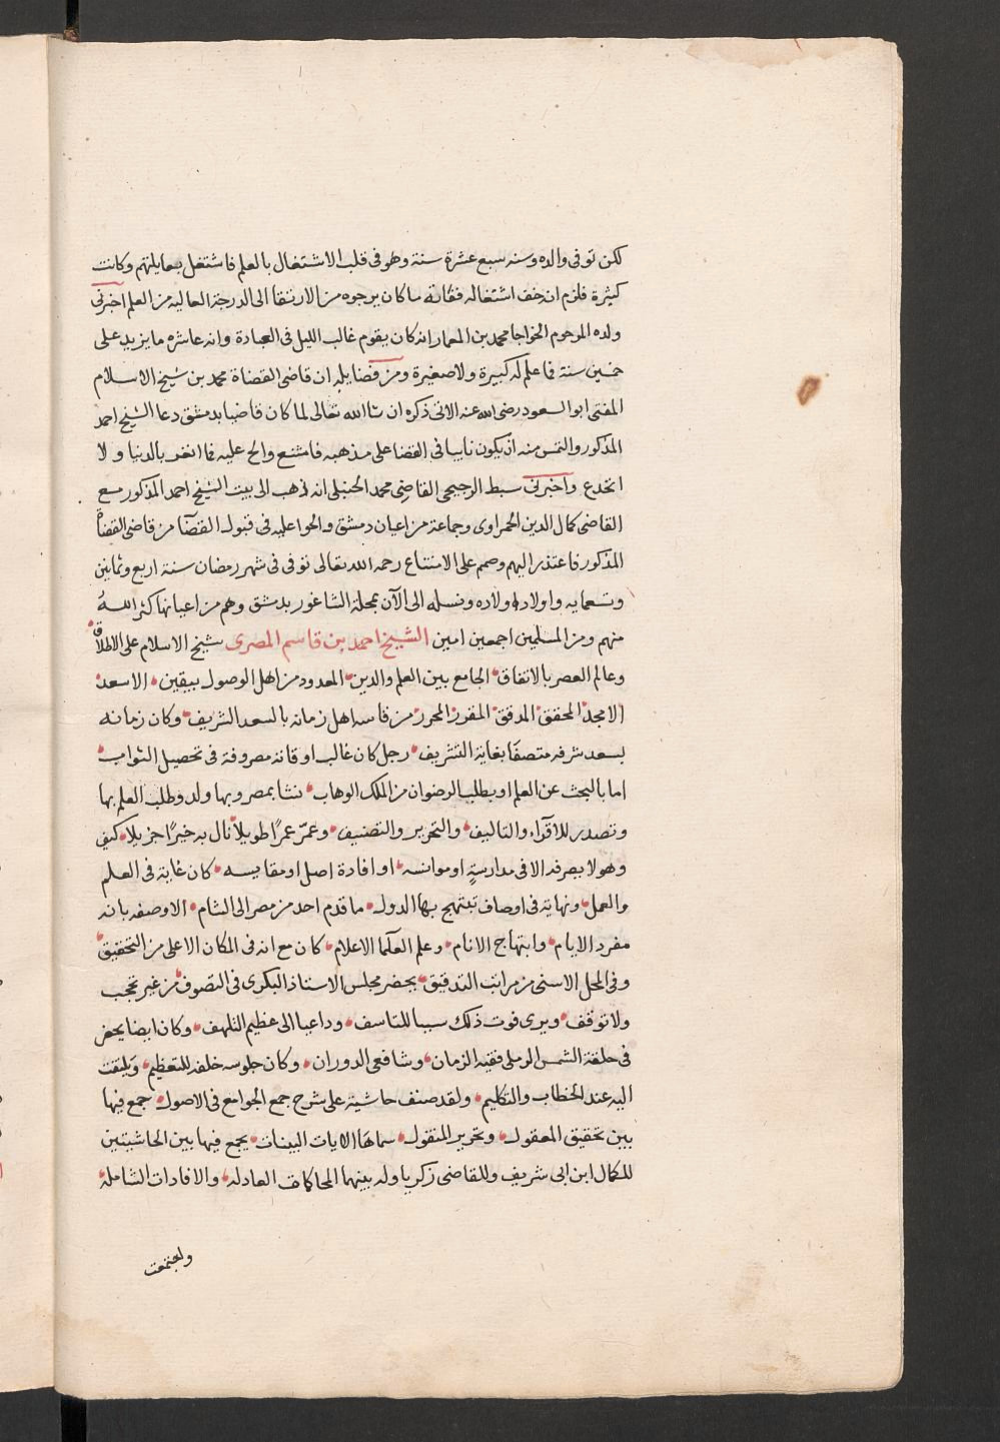 لكن توفى والده وسنه سبع عشرة سنة وهو فى قلب الاشتغال بالعلم فاشتغل بعايلتهم وكانت
كثيرة فلزم ان خف اشتغاله ففاته ما كان يرجوه من الارتقا الى الدرجة العاليه من العلم اخبرنى
ولده المرحوم الخواجا محمد بن المعمار انه كان يقوم غالب الليل فى العبادة وانه عاشره ما يزيد على
خمسين سنة فما علم له كبيرة ولا صغيرة ومن فضايله ان قاضى القضاة محمد بن شيخ الاسلام
المفتى ابو السعود رضى الله عنه الاتى ذكره ان شا الله تعالى لما كان قاضيا بدمشق دعا الشيخ احمد
المذكور والتمس منه ان يكون نايبا فى القضا على مذهبه فامتنع والح عليه فما انغر بالدنيا ولا
انخدع واخبرنى سبط الرجيحى القاضى محمد الحنبلى انه ذهب الى بيت الشيخ احمد المذكور مع
القاضى كمال الدين الحمراوى وجماعة من اعيان دمشق والحوا عليه فى قبول القضا من قاضى القضاة
المذكور فاعتذر اليهم وصمم على الامتناع رحمه الله تعالى توفى فى شهر رمضان سنة اربع وثمانين
وتسعمايه واولاده واولاد اولاده ونسله الى الآن بمحلة الشاغور بدمشق وهم من اعيانها كثر الله
منهم ومن المسلمين اجمعين امين الشيخ احمد بن قاسم المصرى شيخ الاسلام على الاطلاق
وعالم العصر بالاتفاق الجامع بين العلم والدين المعدود من اهل الوصول بيقين الاسعد
الامجد المحقق المدقق المقرر المحرر من قاسه اهل زمانه بالسعد الشريف وكان زمانه
بسعد شرفه متصفا بغاية التشريف رجل كان غالب اوقاته مصروفة فى تحصيل الثواب
اما بالبحث عن العلم او بطلب الرضوان من الملك الوهاب نشا بمصر وبها ولد وطلب العلم بها
وتصدر للاقراء والتاليف والتحرير والتصنيف وعمّر عمرًا طويلا نال به خيرًا جزيلا كيف
وهو لا يصرفه الا فى مدارسةٍ او موانسه او افادة اصل او مقايسه كان غاية فى العلم
والعمل ونهاية فى اوصاف تبتهج بها الدول ما قدم احد من مصر الى الشام الا وصفه بانه
مفرد الايام وابتهاج الانام وعلم العلما الاعلام كان مع انه فى المكان الاعلى من التحقيق
وفى المحل الاسنى من مراتب التدقيق يحضر مجلس الاستاذ البكرى فى التصوف من غير تحجب
ولا توقف ويرى فوت ذلك سببا للتاسف وداعيا الى عظيم التلهف وكان ايضا يحضر
فى حلقة الشمس الرملى فقيه الزمان وشافعى الدوران وكان جلوسه خلفه للتعظيم ويلتفت
اليه عند الخطاب والتكليم ولقد صنف حاشية على شرح جمع الجوامع فى الاصول جمع فيها
بين تحقيق المعقول وتحرير المنقول سماها الايات البينات يجمع فيها بين الحاشيتين
للكمال ابن ابى شريف وللقاضى زكريا وله بينهما المحاكمات العادله والافادات الشاملة
واجتمعت